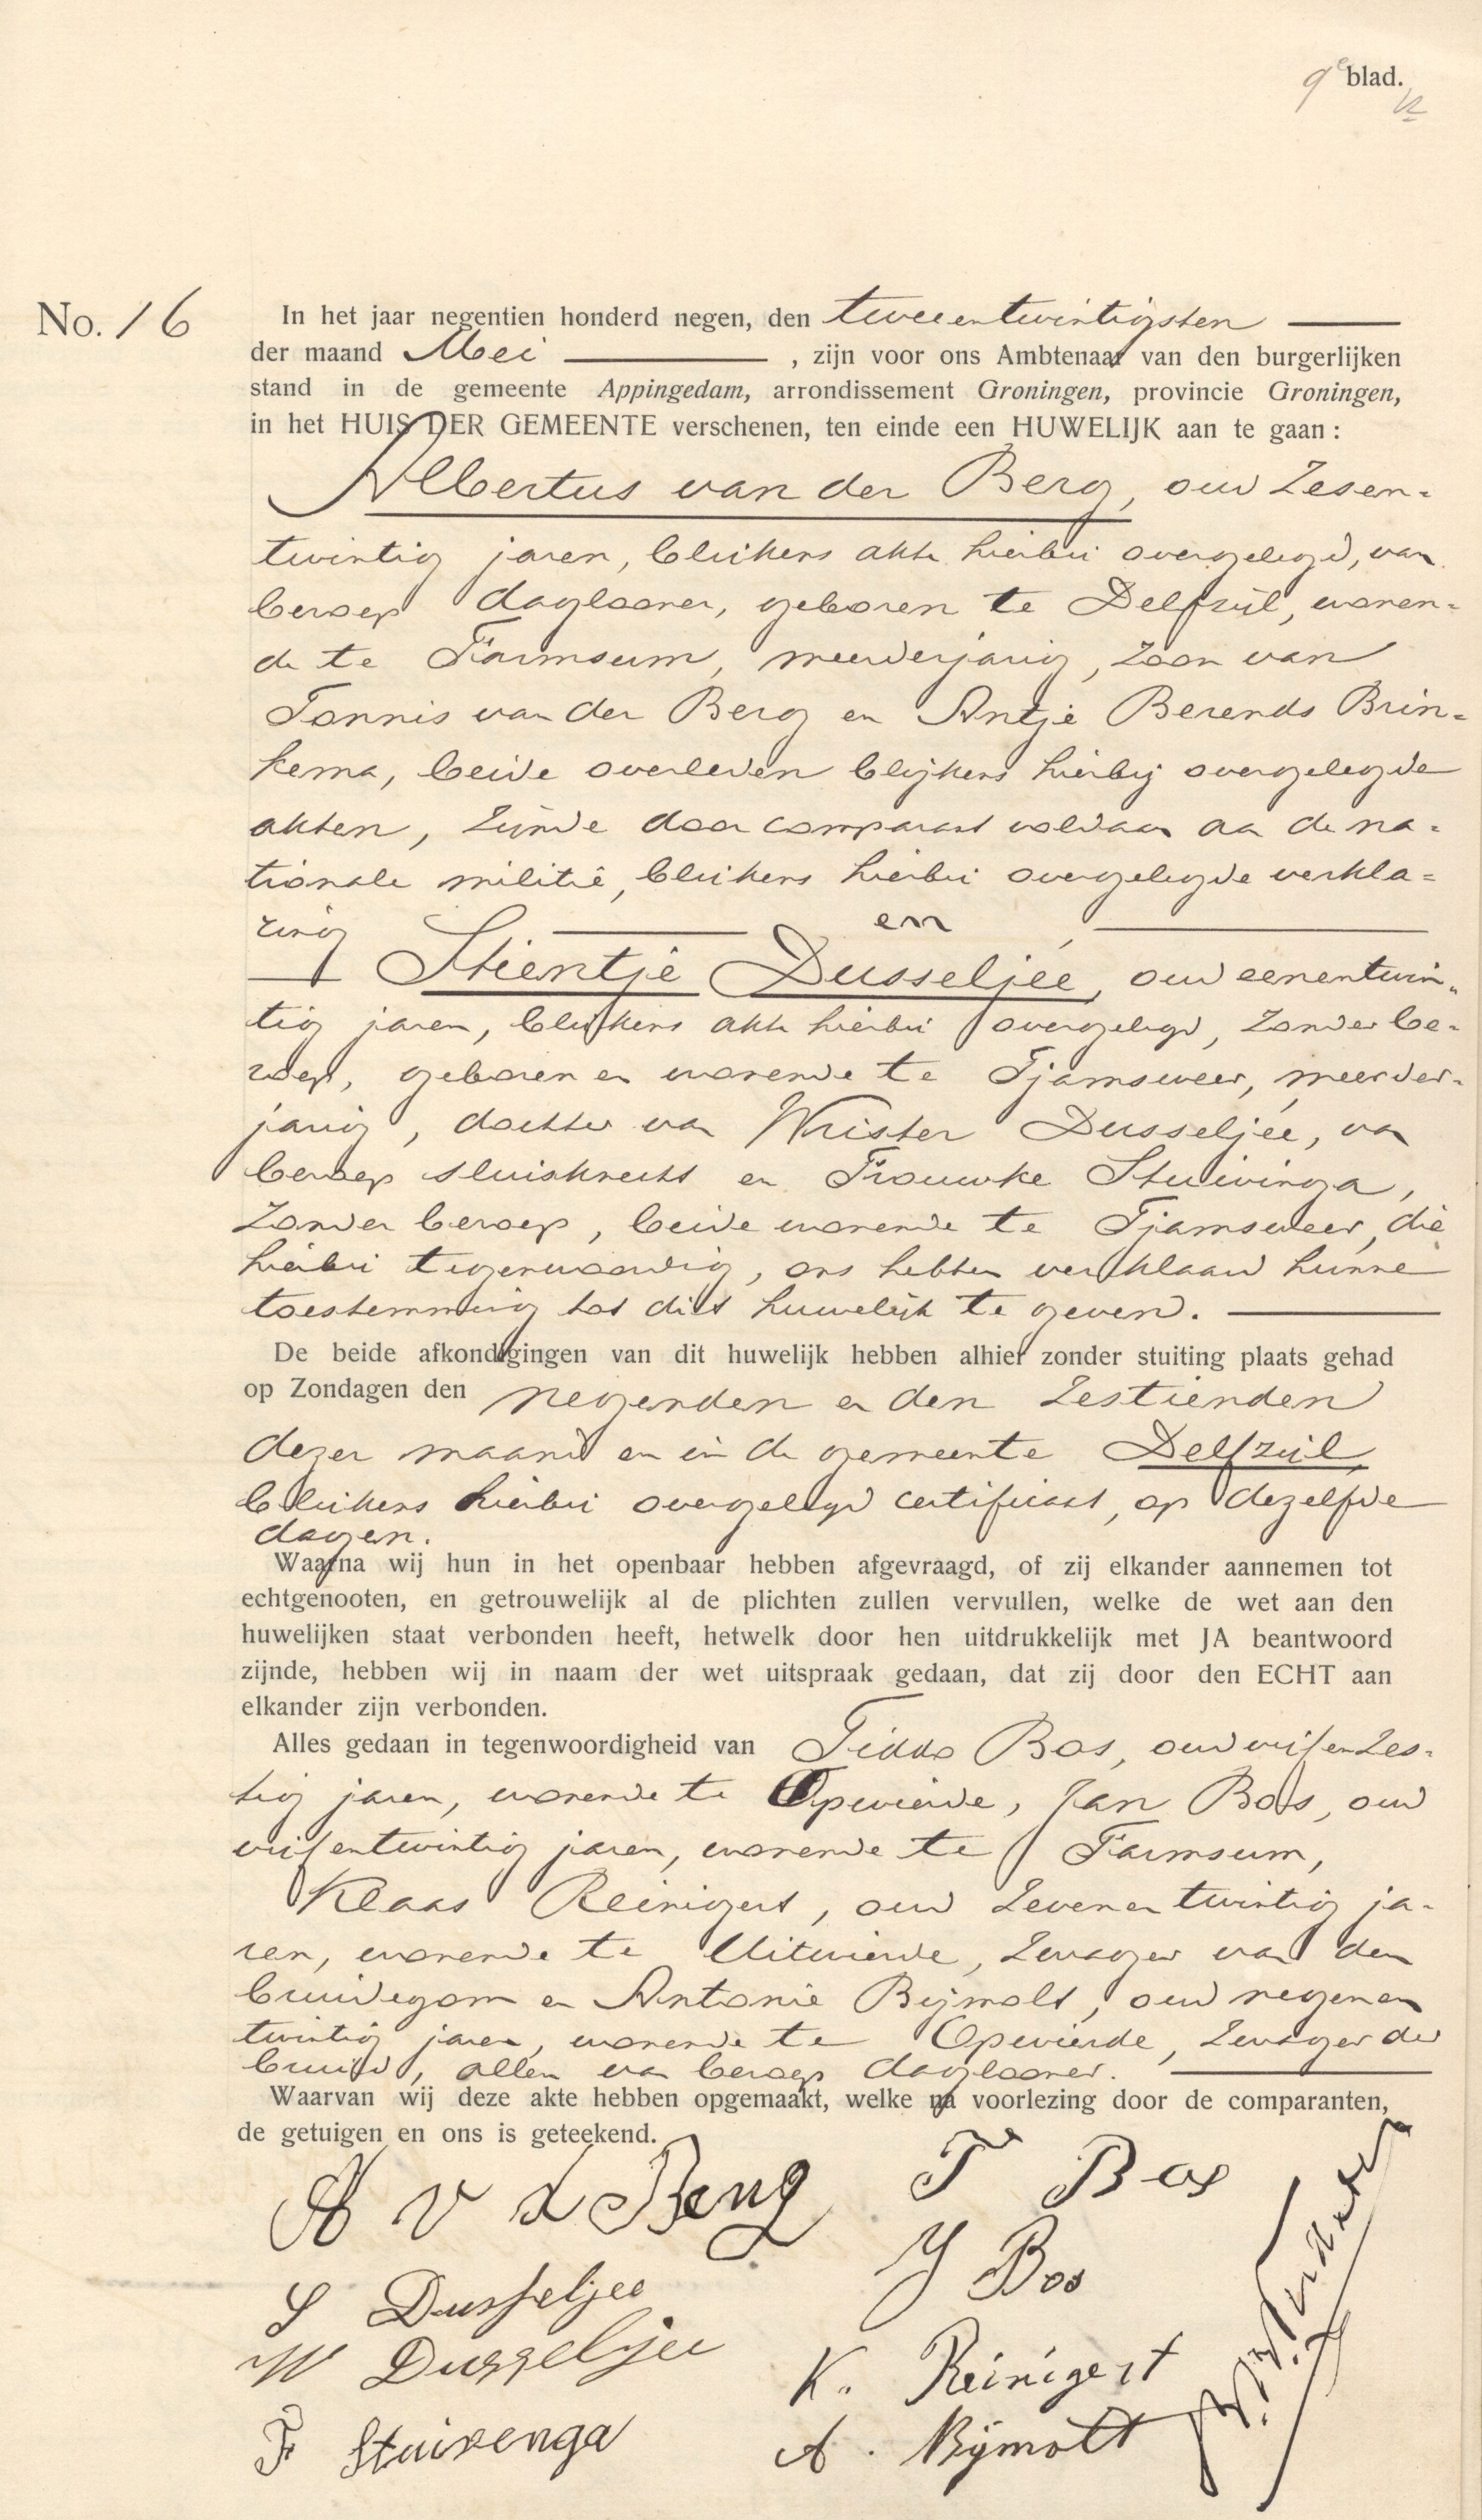 9e blad.
No. 16
In het jaar negentien honderd negen, den tweeentwintigsten
der maand Mei , zijn voor ons Ambtenaar van den burgerlijken
stand in de gemeente Appingedam, arrondissement Groningen, provincie Groningen,
in het HUIS DER GEMEENTE verschenen, ten einde een HUWELIJK aan te gaan:
Albertus van der Berg, oud zesen=
twintig jaren, blijkens akte hierbij overgelegd, van
beroep daglooner, geboren te Delfzijl, wonen=
de te Farmsum, meerderjarig, zoon van
Tonnis van der Berg en Antje Berends Brin=
kema, beide overleden blijkens hierbij overgelegde
akten, zijnde door comparant voldaan aan de na=
tionale militie, blijkens hierbij overgelegde verkla=
ring en
Stientje Dusseljée, oud eenentwin=
tig jaren, blijkens akte hierbij overgelegd, zonder be=
roep, geboren en wonende te Tjamsweer, meerder=
jarig, dochter van Wrister Dusseljée, van
beroep sluisknecht en Frouwke Stuivinga,
zonder beroep, beide wonende te Tjamsweer, die
hierbij tegenwoordig, ons hebben verklaard hunne
toestemming tot dit huwelijk te geven.
De beide afkondigingen van dit huwelijk hebben alhier zonder stuiting plaats gehad
op Zondagen den negenden en den zestienden
dezer maand en in de gemeente Delfzijl,
blijkens hierbij overgelegd certificaat, op dezelfde
dagen.
Waarna wij hun in het openbaar hebben afgevraagd, of zij elkander aannemen tot
echtgenooten, en getrouwelijk al de plichten zullen vervullen, welke de wet aan den
huwelijken staat verbonden heeft, hetwelk door hen uitdrukkelijk met JA beantwoord
zijnde, hebben wij in naam der wet uitspraak gedaan, dat zij door den ECHT aan
elkander zijn verbonden.
Alles gedaan in tegenwoordigheid van Tiddo Bos, oud vijfenzes=
tig jaren, wonende te Opwierde, Jan Bos, oud
vijfentwintig jaren, wonende te Farmsum,
Klaas Reinigert, oud zevenentwintig ja=
ren, wonende te Uitwierde, zwager van den
bruidegom en Antonie Bijmolt, oud negenen
twintig jaren, wonende te Opwierde, zwager der
bruid, allen van beroep daglooner.
Waarvan wij deze akte hebben opgemaakt, welke na voorlezing door de comparanten,
de getuigen en ons is geteekend.
A v d Berg
T Bos
S Dusseljee
J Bos
W Dusseljee
K. Reinigert
F Stuivenga
A. Bijmolt